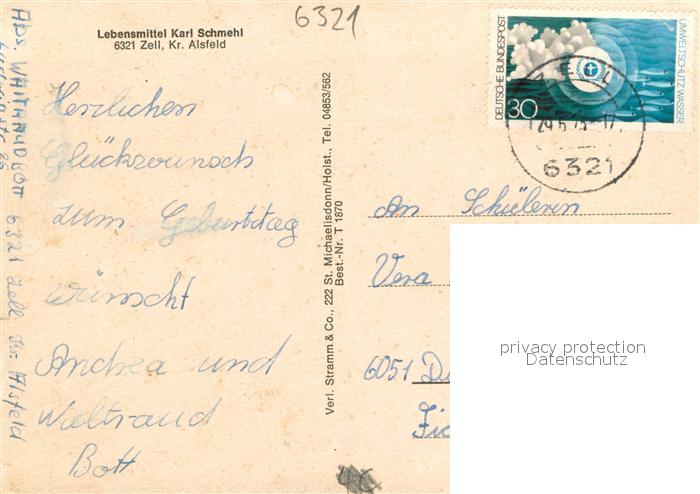 6321
Lebensmittel Karl Schmehl
6321 Zell, Kr. Alsfeld
DEUTSCHE BUNDESPOST
30
UMWELTSCHUTZ WASSER
ZELL
6321
Herzlichen
Glückwunsch
zum Geburtstag
wünscht
Andrea und
Waltraud
Bott
Abs. WALTRAUD BOTT 6321 Zell Kr. Alsfeld
Verl. Stramm & Co., 222 St. Michaelisdonn/Holst., Tel. 04853/562
Best.-Nr. T 1870
An Schülerin
Vera
6051
privacy protection
Datenschutz